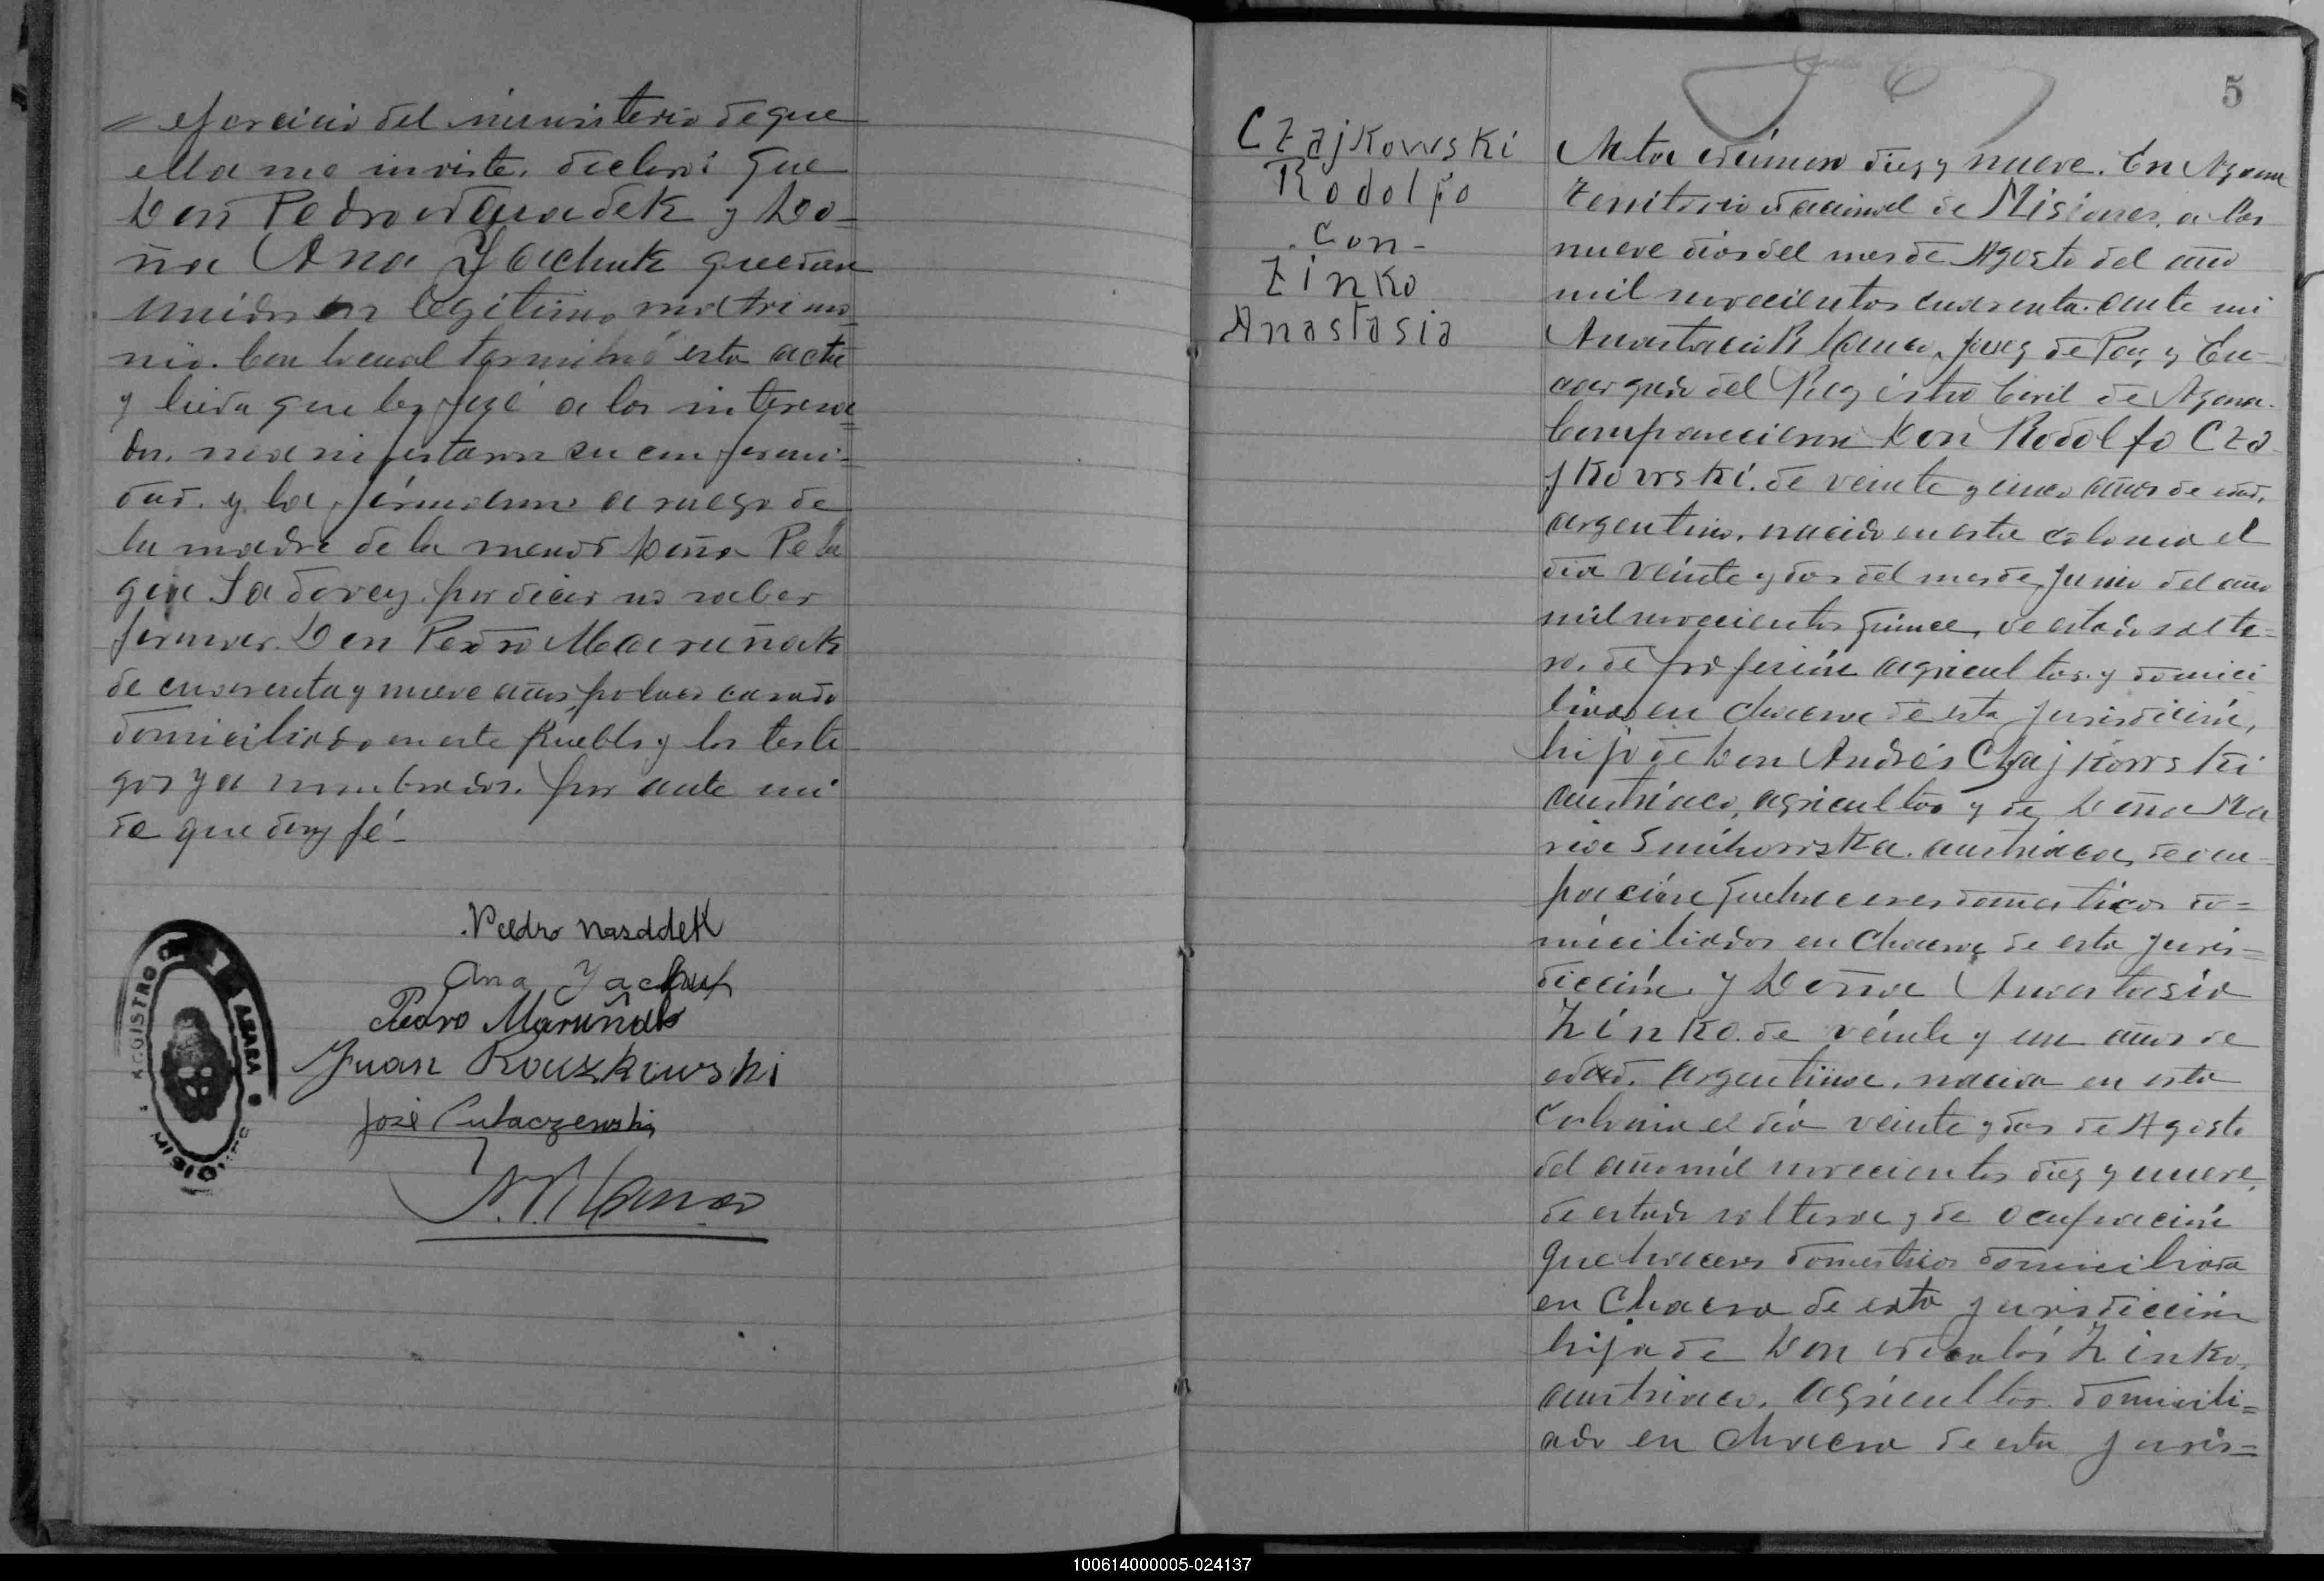 ejercicio del ministerio de que
ella me inviste. declaré que
Don Pedro Nauadek y Do-
ña Ana Yachuk quedan
unidos en legítimo matrimo-
nio. Con lo cual terminó esta acta
y leida que les fué a los interesa=
dos. manifestaron su conformi=
dad. y la firmaron a ruego de
la madre de la menor Doña Pela
gia Sadovey por decir no saber
firmar. Don Pedro Maruñak
de cuarenta y nueve años, polaco casado
domiciliado en este Pueblo y los testi
gos ya nombrados. por ante mi
de que doy fé-
Pedro Nasddek
Ana Yachuk
Pedro Maruñak
Juan Rouzkowski
José Putaczewski
REGISTRO AZARA
MISIONES
5
Czajkowski
Rodolfo
-con-
Zinko
Anastasia
Acta número diez y nueve. En Azara
Territorio Nacional de Misiones, a los
nueve dias del mes de Agosto del año
mil novecientos cuarenta. ante mi
Anastacio R Juez de Paz y En-
cargado del Registro Civil de Azara.
Comparecieron Don Rodolfo Cza
jkowski. de veinte y cinco años de edad,
argentino, nacido en esta colonia el
dia veinte y dos del mes de Junio del año
mil novecientos quince, de estado solte=
ro. de profesión agricultor y domici
liado en chacra de esta jurisdición,
hijo de Don Andrés Czajkowski
austriaco, agricultor y de Doña Ma
ria Smihovska. austriaca, de ocu-
pación quehaceres domesticos do=
miciliados en chacra de esta juris=
dicción. y Doña Anastasia
Zinko. de veinte y un años de
edad. argentina. nacida en esta
colonia el día veinte y dos de Agosto
del año mil novecientos diez y nueve,
de estado soltera y de ocupación
quehaceres domesticos domiciliada
en Chacra de esta jurisdicción
hija de Don Nicolás Zinko.
austriaco. agricultor. domicili=
ado en chacra de esta juris=
100614000005-024137